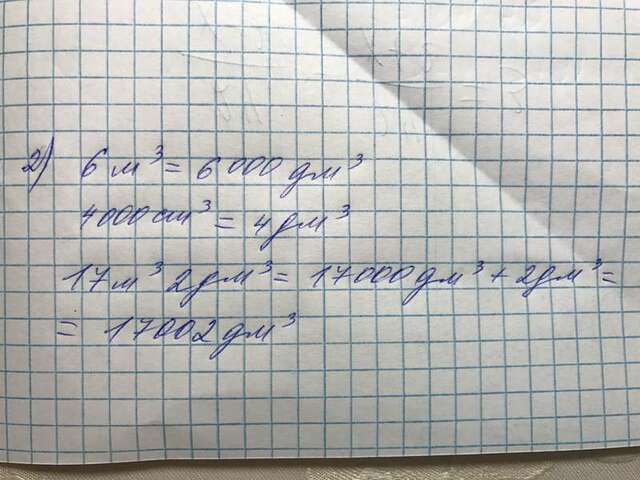 2) 6 м³ = 6 000 дм³
4000 см³ = 4 дм³
17 м³ 2 дм³ = 17000 дм³ + 2 дм³ =
= 17002 дм³